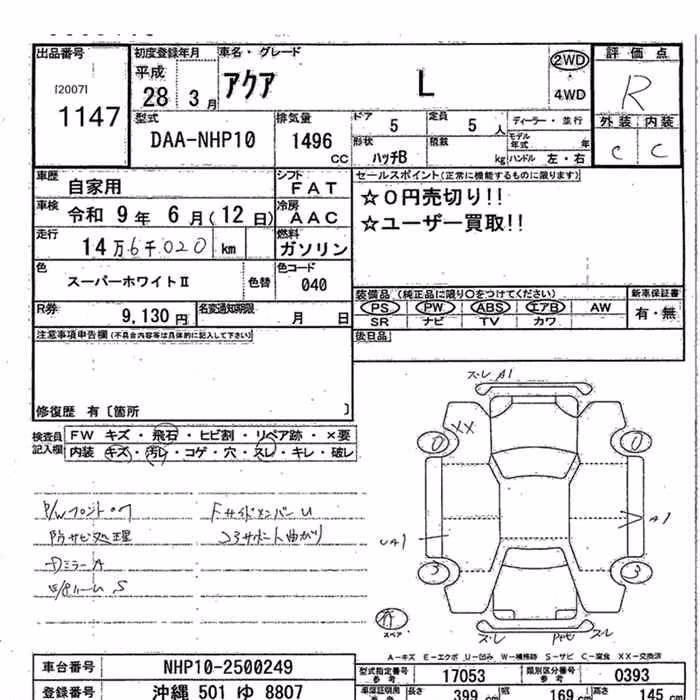 出品番号 初度登録年月 車名・グレード 評価点
[2007] 1147 平成 28 3月 アクア L 2WD ・ 4WD R
型式 DAA-NHP10 排気量 1496 CC ドア 5 定員 5 人 ディーラー・並行 外装 内装
形状 ハッチB 積載 kg モデル年式 年 ハンドル 左・右 C C
車歴 自家用 シフト FAT セールスポイント(正常に機能するものに限ります)
車検 令和 9年 6月(12日) 冷房 AAC ☆0円売切り!!
走行 14万6千020 km 燃料 ガソリン ☆ユーザー買取!!
色 スーパーホワイトⅡ 色替 色コード 040
R券 9,130円 名変通知期限 月 日 装備品(純正品に限り○をつけてください) 新車保証書
PS PW ABS エアB AW 有・無
SR ナビ TV カワ
注意事項申告欄(不具合内容等は具体的に記入して下さい) 後日品
修復歴 有〔箇所 〕
検査員記入欄 FW キズ・飛石・ヒビ割・リペア跡・×要
内装 キズ・汚レ・コゲ・穴・スレ・キレ・破レ
ズレ A1
XX
0 0
P/Wフロント FサイドメンバーU
防サビ処理 コアサポート曲がり
DミラーA
UA1 A1
3 3
有 スペア
ズレ ズレ
A-キズ E-エクボ U-凹み W-補修跡 S-サビ C-腐食 XX-交換済
車台番号 NHP10-2500249 型式指定番号 参考 17053 類別区分番号 参考 0393
登録番号 沖縄 501 ゆ 8807 長さ 399 cm 幅 169 cm 高さ 145 cm